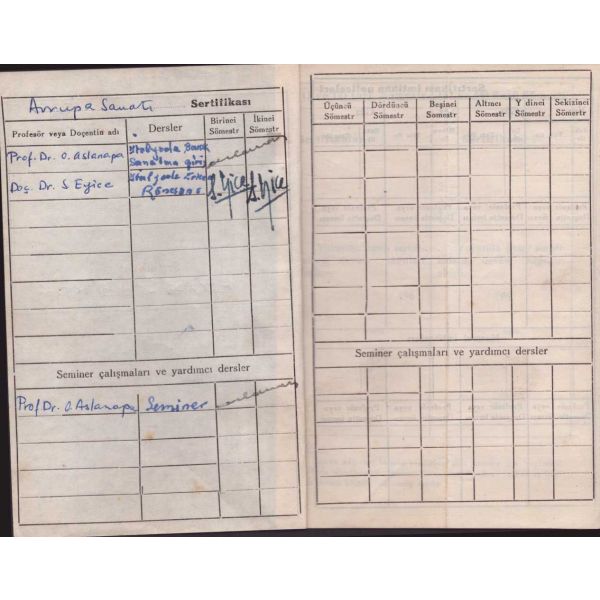 Avrupa Sanatı Sertifikası
Profesör veya Doçentin adı Dersler Birinci Sömestr İkinci Sömestr
Prof. Dr. O. Aslanapa İtalyada Barok Sanatına giriş
Doç. Dr. S. Eyice İtalyada Erken Rönesans S. Eyice S. Eyice
Seminer çalışmaları ve yardımcı dersler
Prof Dr. O. Aslanapa Seminer
Üçüncü Sömestr Dördüncü Sömestr Beşinci Sömestr Altıncı Sömestr Y dinci Sömestr Sekizinci Sömertr
Seminer çalışmaları ve yardımcı dersler